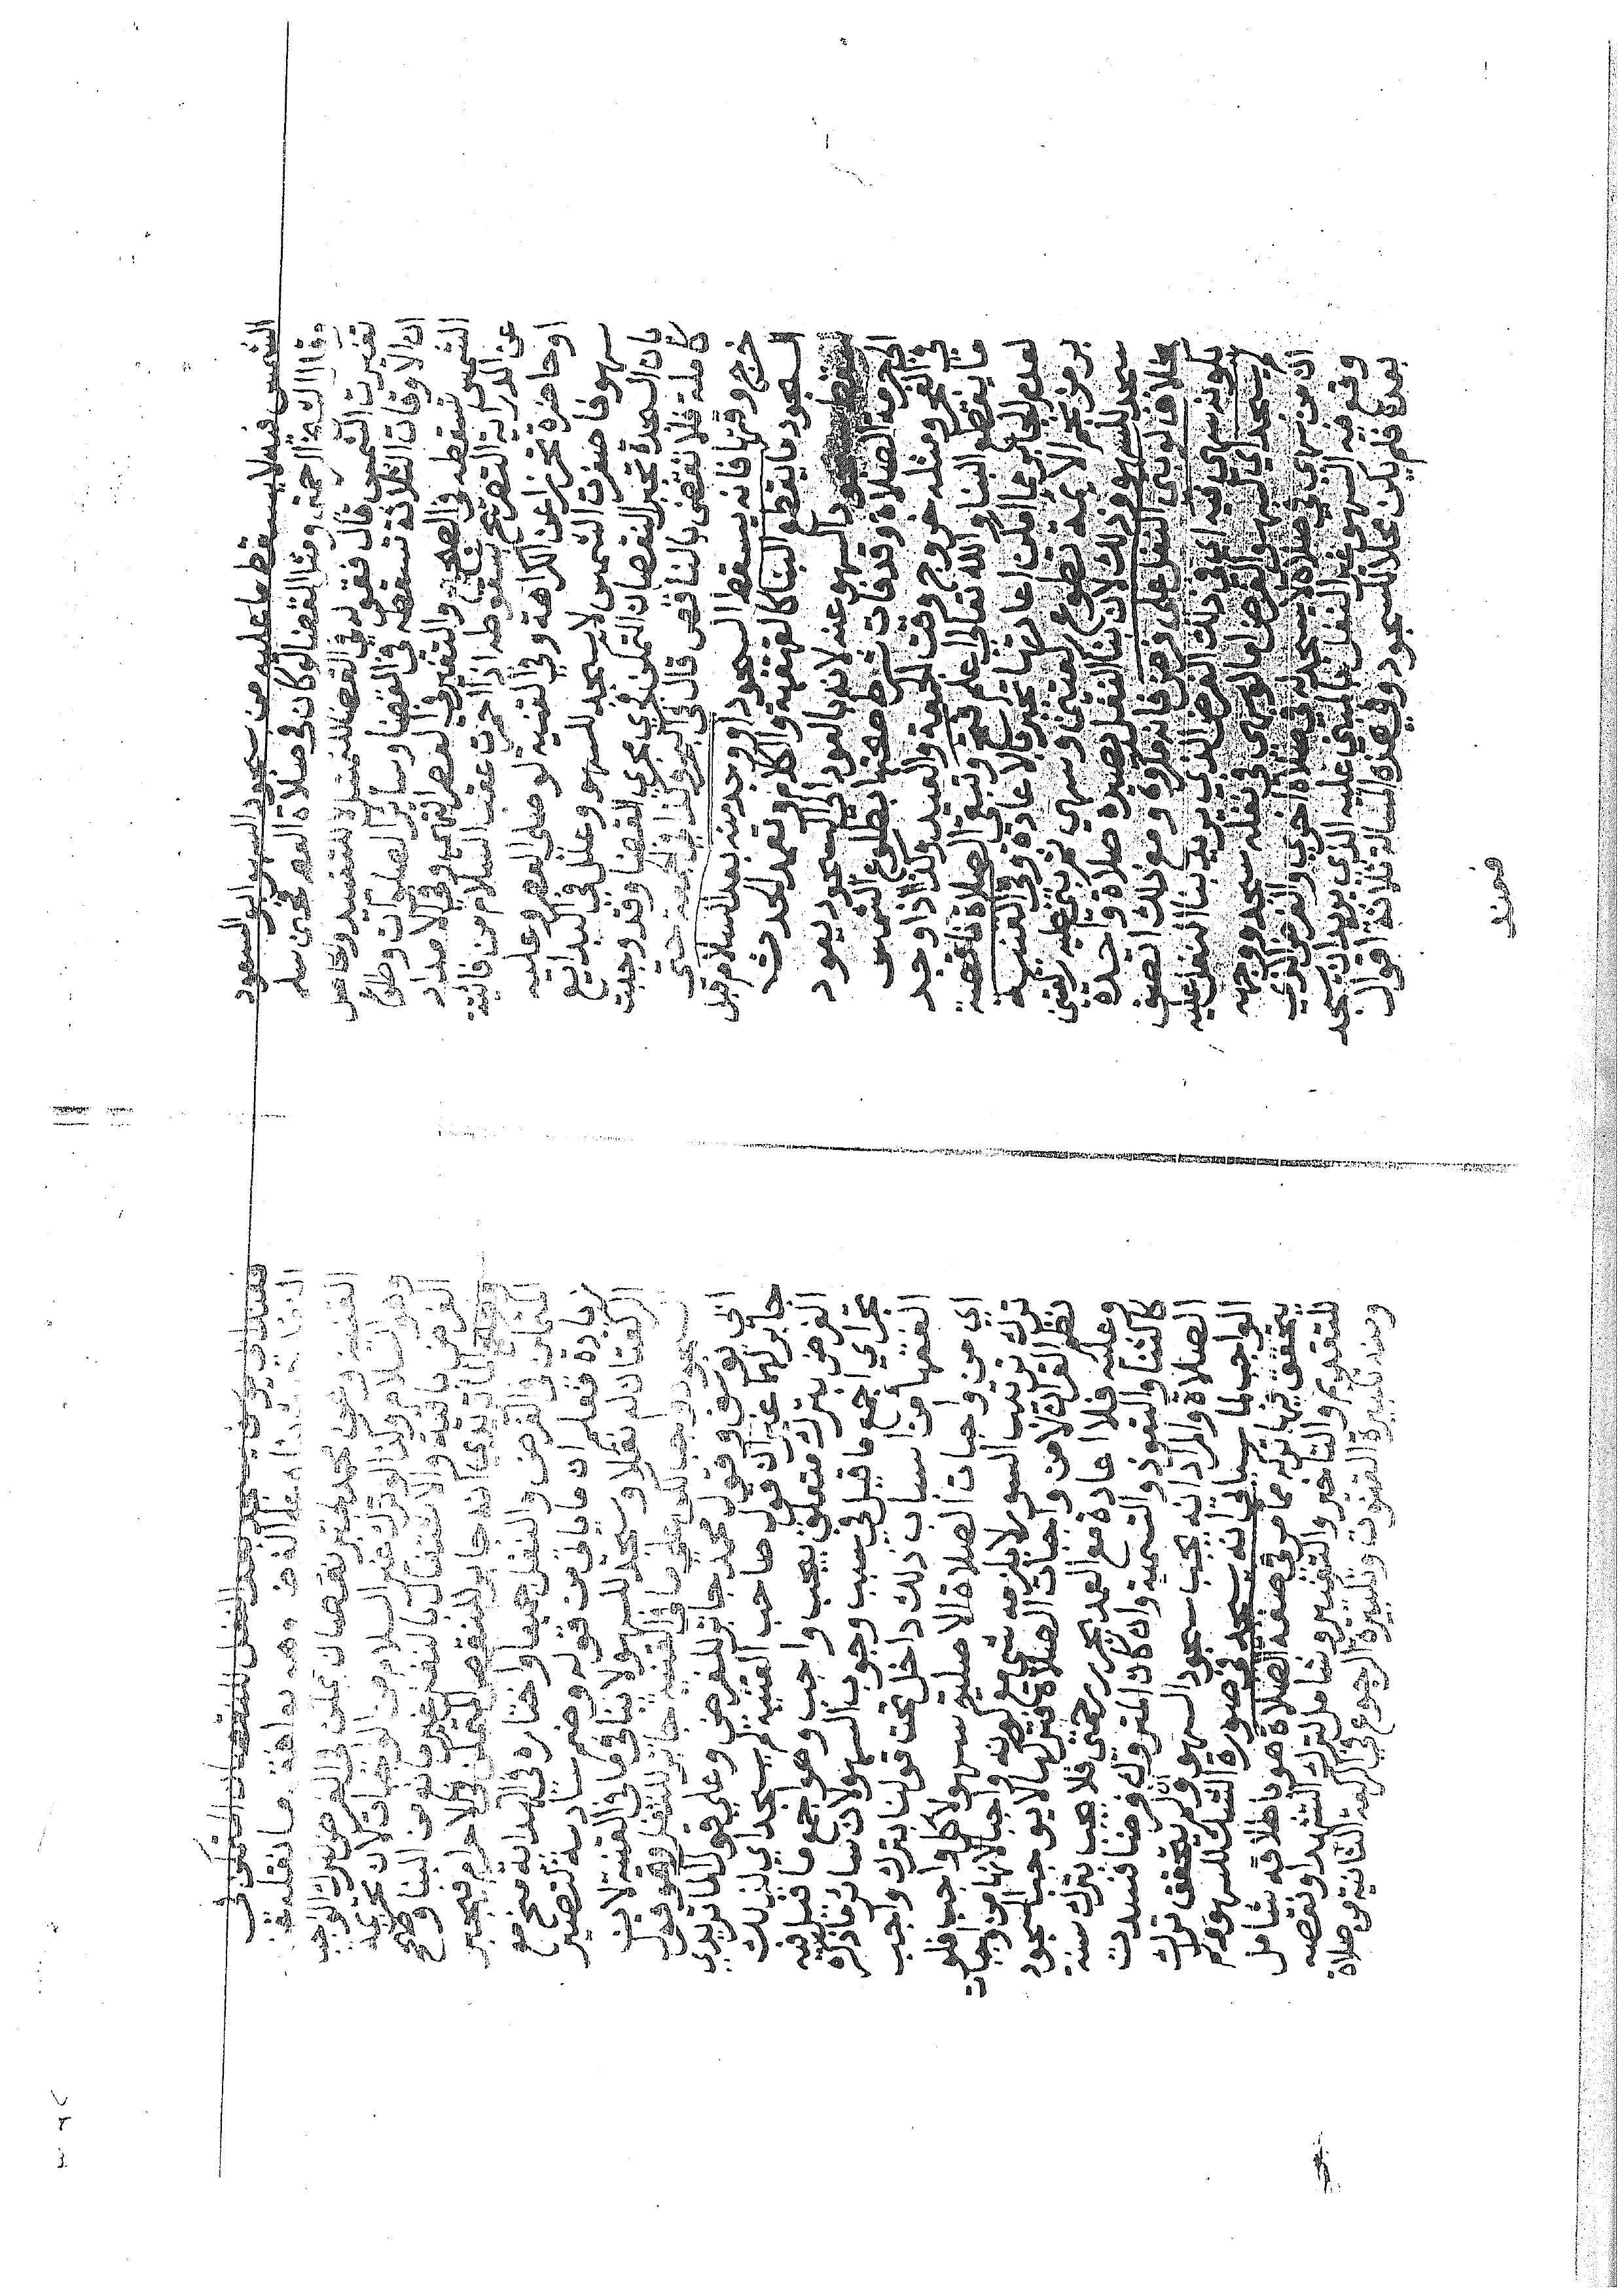 الشمس فيه لا يسقط ما عليه من سجود السهو ابو السعود
وقال الشيخ الرحمتي ومثل القضا لو كان في صلاة العصر حتى
تغيرت الشمس قال فقوله في القضا ليس للتقييد وظاهر
ان الاوقات الثلاثة تسقطه في القضا وسائر الصلوات وطلوع
الشمس تسقطه في الصحيح والتغير في العصر انتهى وفي الامداد
عن الدراية التصريح بسقوطه اذا احمرت عقب السلام من فائتة
او حاضرة تحرزا عن الكراهة وفي القنية لو صلى العصر وعليه
سهو فاصفرت الشمس لا يسجد للسهو وعلل في البدايع
بان السجدة تجبر النقصان المتمكن فيجري مجرى القضا وقد وجبت
كاملة فلا تقضى بالناقص قال في البحر وكذا في الجمعة حتى
خرج وقتها فانه يسقط السجود او وجد منه بعد السلام قبل
السجود ما يقطع البنا كالقهقهة والكلام وتعمد الحدث
سقط سجود السهو عنه لانه بالعود الى السجود يعود
الى حرمة الصلاة وقد فات شرط صحتها بطلوع الشمس
في الفجر ومثله خروج وقت الجمعة والعيد وكذا اذا وجد
ما يقطع البنا والله تعالى اعلم فتح وتبقى الصلاة ناقصة
لعدم الجابر مما امكن اعادتها تجبر بالاعادة وفي القنية
برمز نجم الائمة تطوع ركعتين وسهى ثم بنى عليه ركعتين
يسجد للسهو وذلك لان بنا النفل يصيره صلاة واحدة
بخلاف ما لو بنى النفل على فرض فانه مكروه ومع ذلك ان صور
بكونه سهى فيه اي في ذلك الفرض الذي يريد بنا النفل عليه
لم يسجد اي لسهو الفرض اما لو سهى في نفله سجد ووجهه
ان من سهى في صلاة لا يسجد له في صلاة اخرى والفرض الذي
وقع فيه السهو غير النفل المبني عليه الذي يريد ان يسجد
بعده فلم يكن محلا للسجود وفي هذه المسالة ثلاثة اقوال
فعند
فعند ابي يوسف يسجد في اخر النفل للنقصان المتمكن في
الفرض
وعن محمد يجبر نقصان تمكن في الفرض بترك الواجب
السلام من الواجبات لان تحريمة
الفرض باقية والانتقال الى النفل غير مانع من البنا وصح
انه جابر للنقص المتمكن في الاحرام فيجبر
الفرض والنفل جميعا واختاره في الهداية فتح مع
زيادة فعلم ان ما ياتي من قوله وضم سادسة لتصير
الركعتان له نفلا ويسجد للسهو لا ينافي ما في القنية لان
سجوده جابر على ما في القنية جابر للنفل وهو قول
ابي يوسف وقول محمد جابر للفرض وعلى قول الماتريدي
جابر لهما غير ان قول صاحب القنية لم يسجد اي لذلك
الفرض بترك متعلق بيجب واجب وهو اجمع ما قيل فيه
بحر اي اجمع ما قيل في سبب وجوب السهو لان سائر ما ذكره
الفقها من اسباب ذلك داخل تحت قولنا بترك واجب
اي من واجبات الصلاة الاصلية سهوا لا كل واجب فلو
ترك ترتيب السور لا يلزمه شي مع كونه واجبا لانها من واجبات
نظم القران لا من واجبات الصلاة فتركها لا يوجب السجود
وعليه فلا اعادة مع العمد بحر رحمتي فلا يجب بترك سنة
كالثنا والتعوذ والتسمية وان كان المتروك فرضا فسدت
الصلاة والمراد انه يجب سجود السهو وان لم يتحقق ترك
الواجب لما سياتي انه يسجد في صورة الشك للسهو ولم
يتحقق فيها تركه مما مر في صفة الصلاة هو باطلاقه شامل
للتقديم والتاخير والتغيير وشامل لترك التشهد او نقصه
ومنه تكبيرة القنوت وتكبيرة الركوع في الركعة الثانية من صلاة